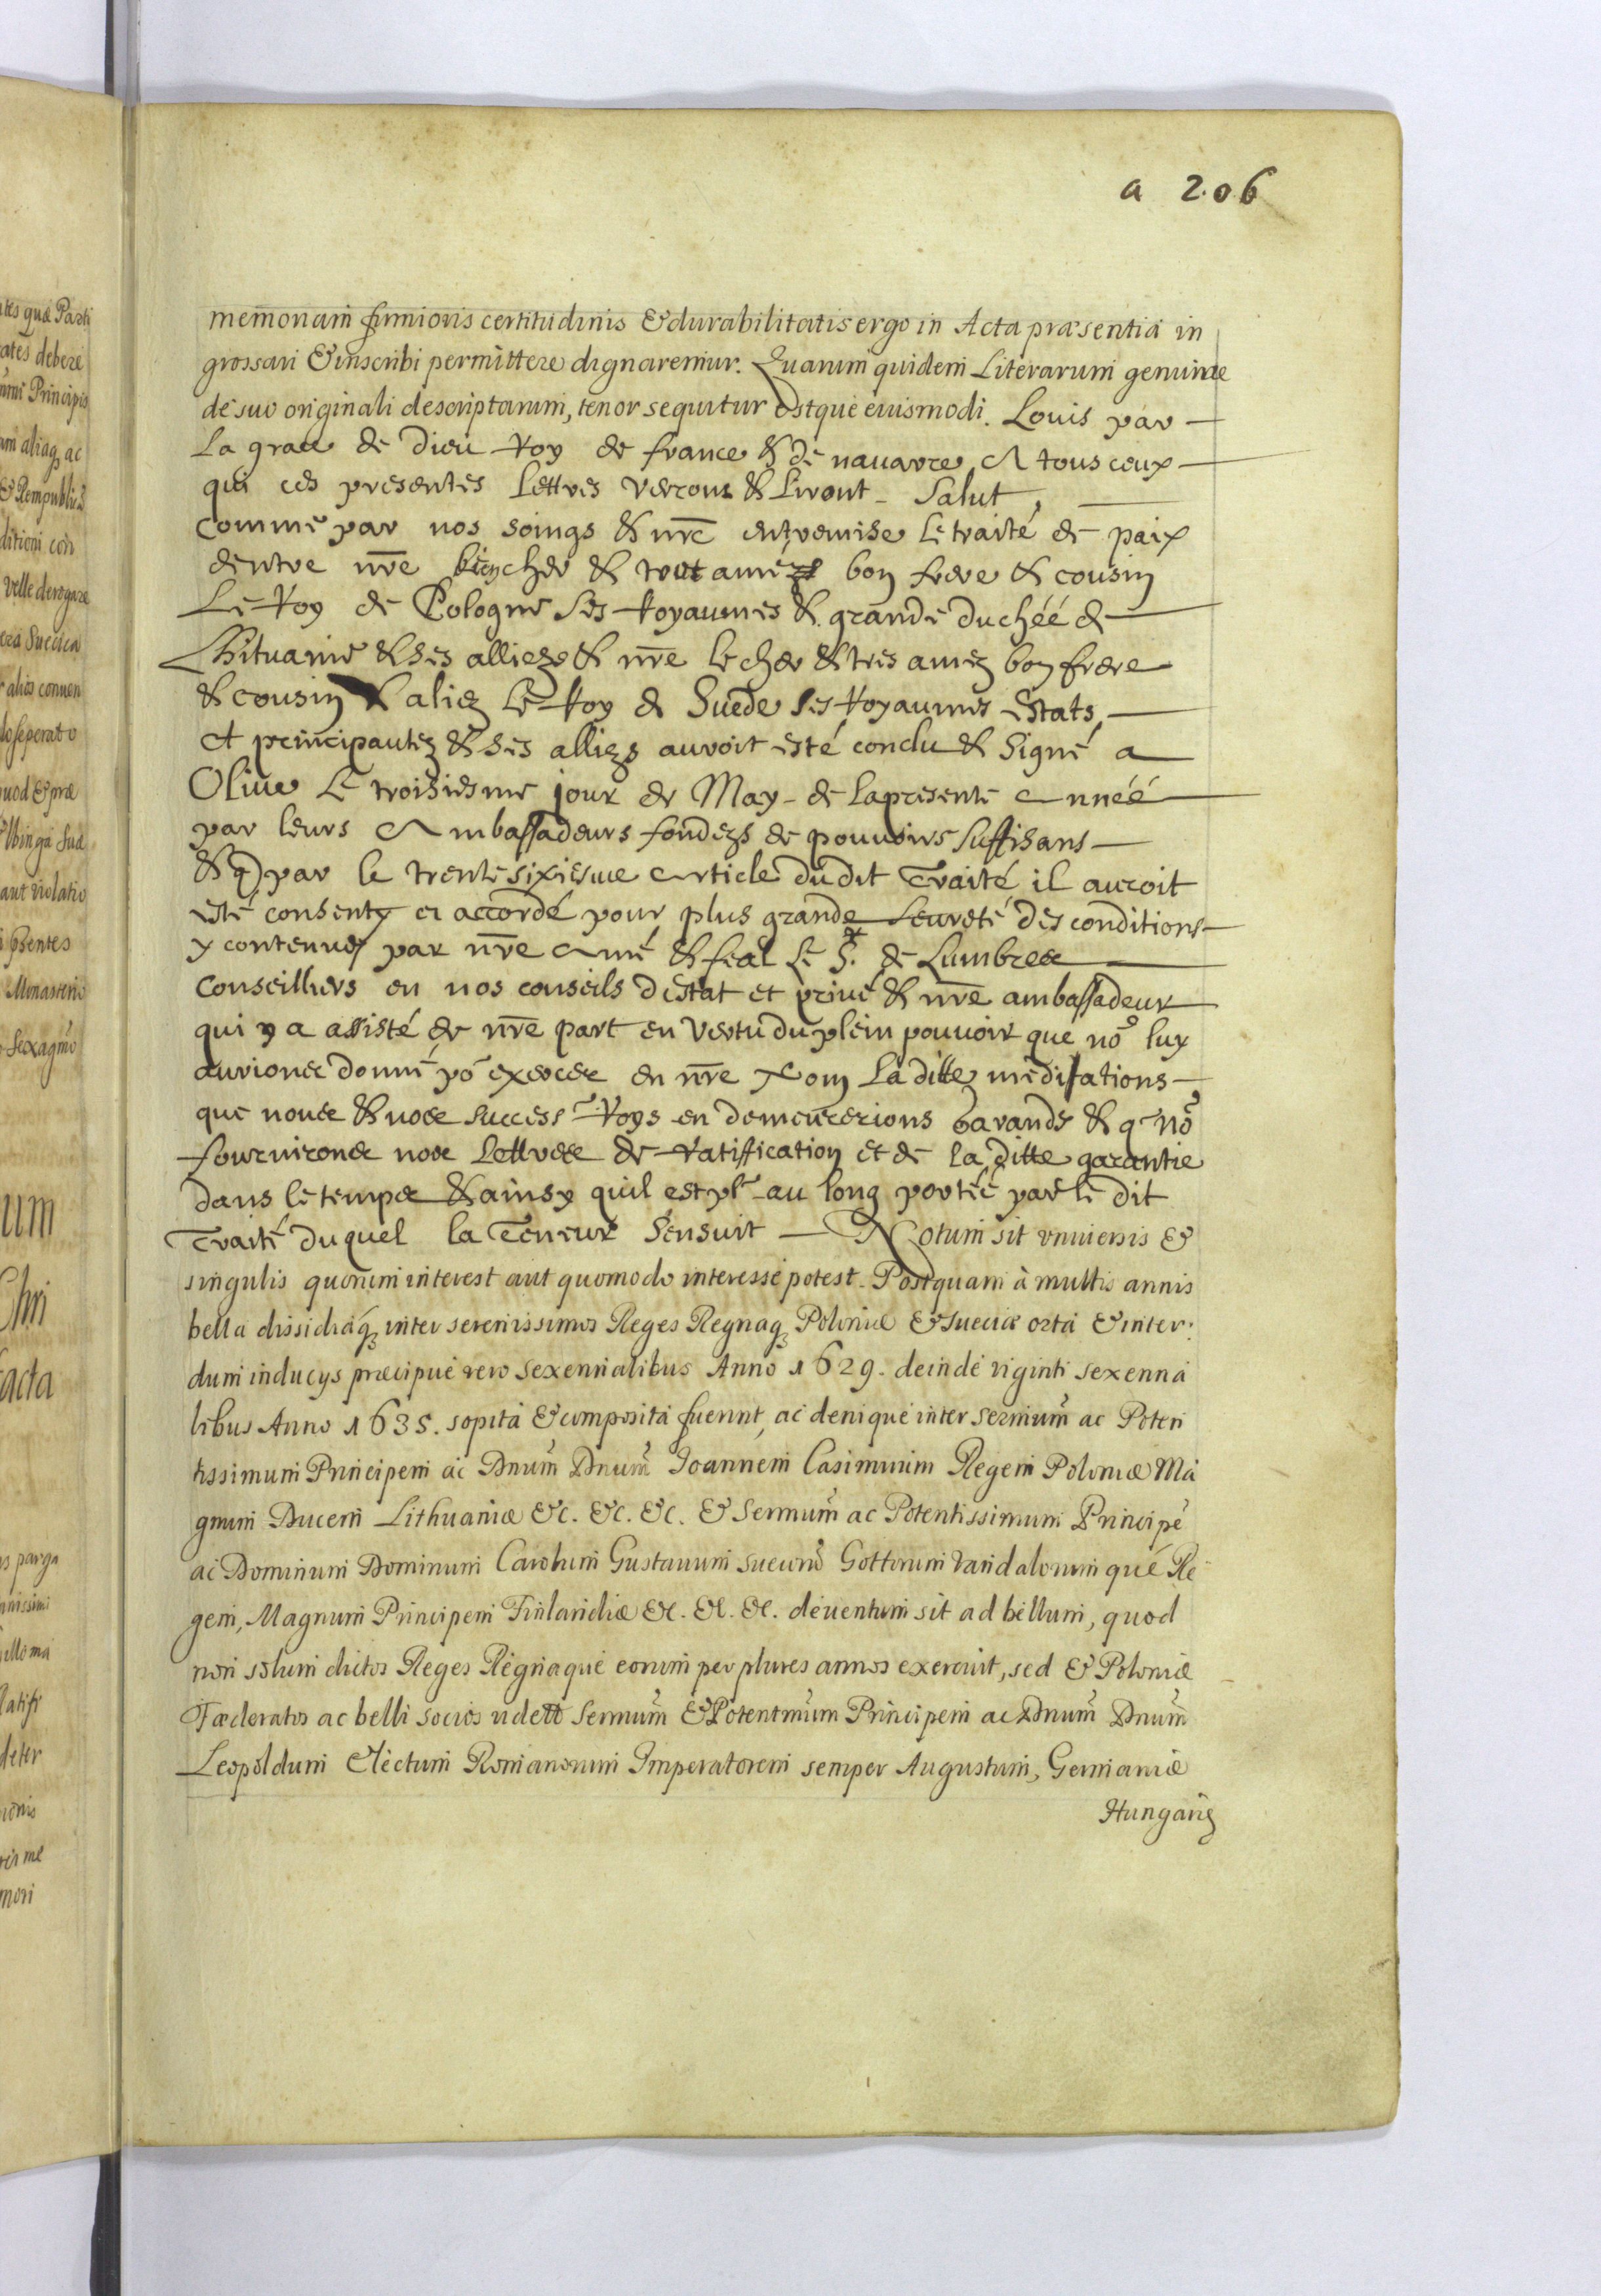 a 206
memoriam firmioris certitudinis & durabilitatis ergo in Acta præsentia in
grossari & inscribi permittere dignaremur. Quarum quidem Literarum genuinæ
de suo originali descriptarum, tenor sequitur estque eiusmodi. Louis par
La grace de Dieu Roy de france & de nauarre A tous ceux
qui ces presentes Lettres verrons & liront Salut,
comme par nos soings & nr̃e entremise le traité de paix
dentre nr̃e bien cher & tout amé bon frere & cousin
Le Roy de Pologne Ses Royaumes & grande duchéé de
Lhituanie & ses alliezs & nr̃e le cher & tres amez bon frere
& cousin & aliez Le Roy de Suede ses Royaumes Estats
et principautez & ses alliezs auroit esté conclu & signé a
Oliue Le troisiesme jour de May de la presente Annéé
par leurs Ambassadeurs fondezs de pouvoirs suffisans
& q̃ par le trente sixiesme Article dudit Traité il auroit
esté consenty et accordé pour plus grande seureté des conditions
y contenues par nr̃e Amé & feal Le Sr. de Lumbres
Conseillers en nos conseils destat et privé & nr̃e ambassadeur
qui y a assisté de nr̃e part en vertu du plein pouvoir que no9 luy
aurions donné po exercer en nr̃e Nom La ditte meditations
que nous & nos success.rs Roys en demeurerions Garands & q no9
fournirons nos Lettres de ratiffication et de la ditte garantie
dans le temps & ainsy quil est pl9 au long portéé par le dit
Traité duquel la Teneur Sensuit Notum sit vniuersis &
singulis quorum interest aut quomodo interesse potest. Postquam à multis annis
bella dissidiaq; inter serenissimos Reges Regnaq; Poloniæ & Sueciæ orta & inter:
dum inducys præcipue vero sexennalibus Anno 1629. deinde viginti sexenna
libus Anno 1635. sopita & composita fuerint, ac denique inter sermum̃ ac Poten
tissimum Principem ac Dnum̃ Dnum̃ Joannem Casimirum Regem Poloniæ Ma
gnum Ducem Lithuaniæ &c. &c. &c. & Sermum̃ ac Potentissimum Principē
ac Dominum Dominum Carolum Gustauum Suecorũ Gottorum Vandalorum que Re
gem, Magnum Principem Finlandiæ &c. &c. &c. deuentum sit ad bellum, quod
non solum dictos Reges Regnaque eorum per plures annos exercuit, sed & Poloniæ
Fœderatos ac belli socios vidett Sermum̃ & Potentmum̃ Principem ac Dnum̃ Dnum̃
Leopoldum Electum Romanorum Imperatorem semper Augustum, Germaniæ
Hungariæ